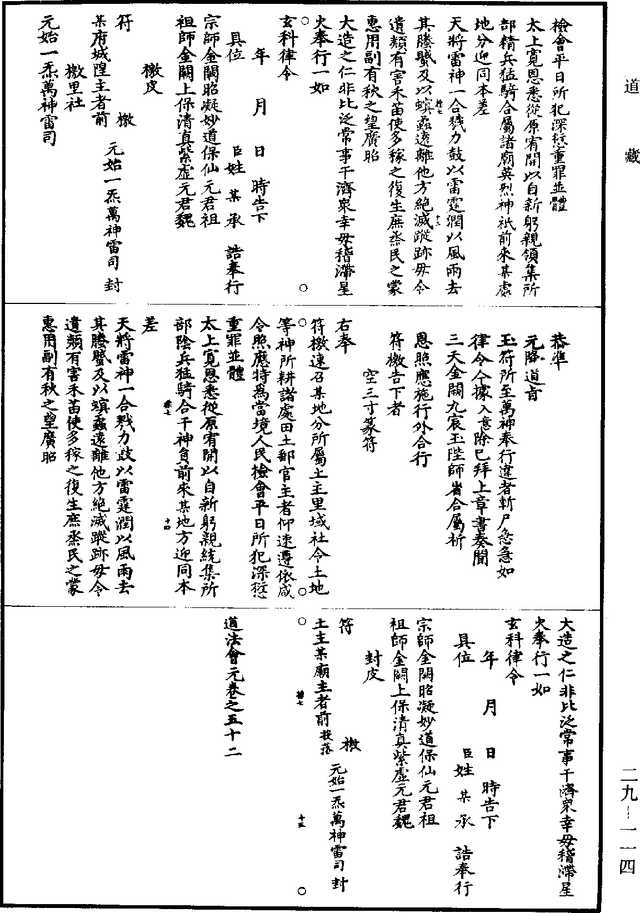 道藏
檢會平日所犯深愆重罪並體
太上寬恩悉從原宥開以自新躬親領集所
部精兵猛騎合屬諸廟英烈神祇前來某處
地分迎同本差
天將雷神一合戮力鼓以雷霆潤以風雨去
其螣䘌及以螟蟲遠離他方絕滅蹤跡毋令
遺類有害禾苗使多稼之復生庶烝民之蒙
惠用副有秋之望廣昭
大造之仁非比泛常事干濟眾幸毋稽滯星
火奉行一如
玄科律令
年月日時告下
具位臣姓某承誥奉行
宗師金闕昭凝妙道保仙元君祖
祖師金闕上保清真紫虛元君魏
檄皮
符檄元始一炁萬神雷司封
某府城隍主者前
檄里社
元始一炁萬神雷司
恭準
元降道旨
玉符所至萬神奉行違者斬尸急急如
律令今據入意除已拜上章書奏聞
三天金闕九宸玉陛師省合屬祈
恩照應施行外合行
符檄告下者
空三寸篆符
右奉
符檄速召某地分所屬土主里域社令土地
等神所耕諸處田土都官主者仰速遵依咸
令照應特為當境人民檢會平日所犯深愆
重罪並體
太上寬恩悉從原宥開以自新躬親統集所
部陰兵猛騎合干神員前來某地方迎同本
差
天將雷神一合戮力鼓以雷霆潤以風雨去
其螣䘌及以螟蟲遠離他方絕滅蹤跡毋令
遺類有害禾苗使多稼之復生庶烝民之蒙
惠用副有秋之望廣昭
大造之仁非比泛常事干濟眾幸毋稽滯星
火奉行一如
玄科律令
年月日時告下
具位臣姓某承誥奉行
宗師金闕昭凝妙道保仙元君祖
祖師金闕上保清真紫虛元君魏
封皮
符檄元始一炁萬神雷司封
土主某廟主者前投落
道法會元卷之五十二
二九—一一四